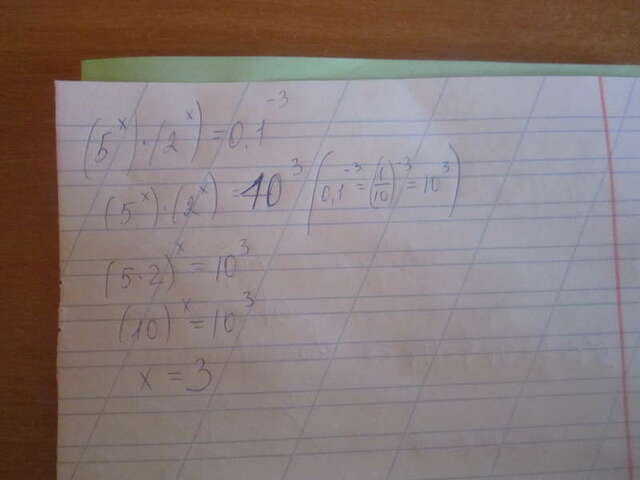 (5^x)·(2^x) = 0,1^-3
(5^x)·(2^x) = 10^3 (0,1^-3 = (1/10)^-3 = 10^3)
(5·2)^x = 10^3
(10)^x = 10^3
x = 3